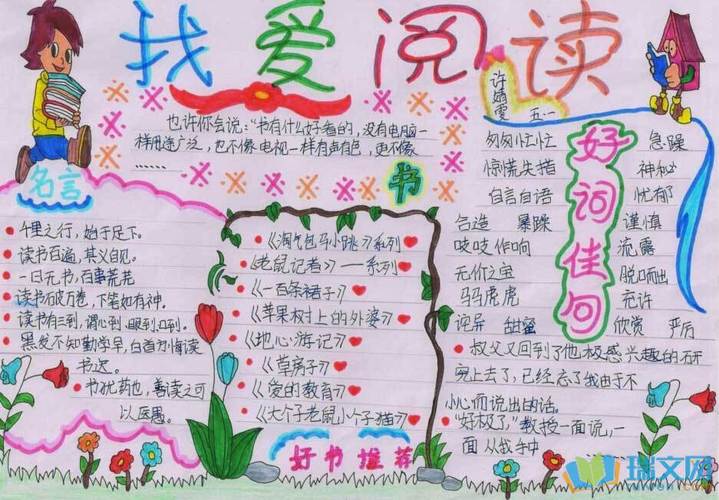 我爱阅读
许婧雯 五一
也许你会说:"书有什么好看的,没有电脑一
样用途广泛,也不像电视一样有声有色,更不像
………
书
名言
千里之行,始于足下。
读书百遍,其义自见。
一日无书,百事荒芜
读书破万卷,下笔如有神。
读书有三到,谓心到、眼到、口到。
黑发不知勤学早,白首方悔读
书迟。
书犹药也,善读之可
以医愚。
《淘气包马小跳》系列
《老鼠记者》——系列
《一百条裙子》
《苹果树上的外婆》
《地心游记》
《草房子》
《爱的教育》
《大个子老鼠小个子猫》
好书推荐
好词佳句
匆匆忙忙 急躁
惊慌失措 神秘
自言自语 忧郁
合造 暴躁 谨慎
吱吱作响 流露
无价之宝 脱口而出
马马虎虎 允许
诧异 甜蜜 欣赏 严厉
叔父又回到了他极感兴趣的研
究上去了,已经忘了我由于不
小心而说出的话。
"好极了,"教授一面说,一
面从我手中
瑞文网